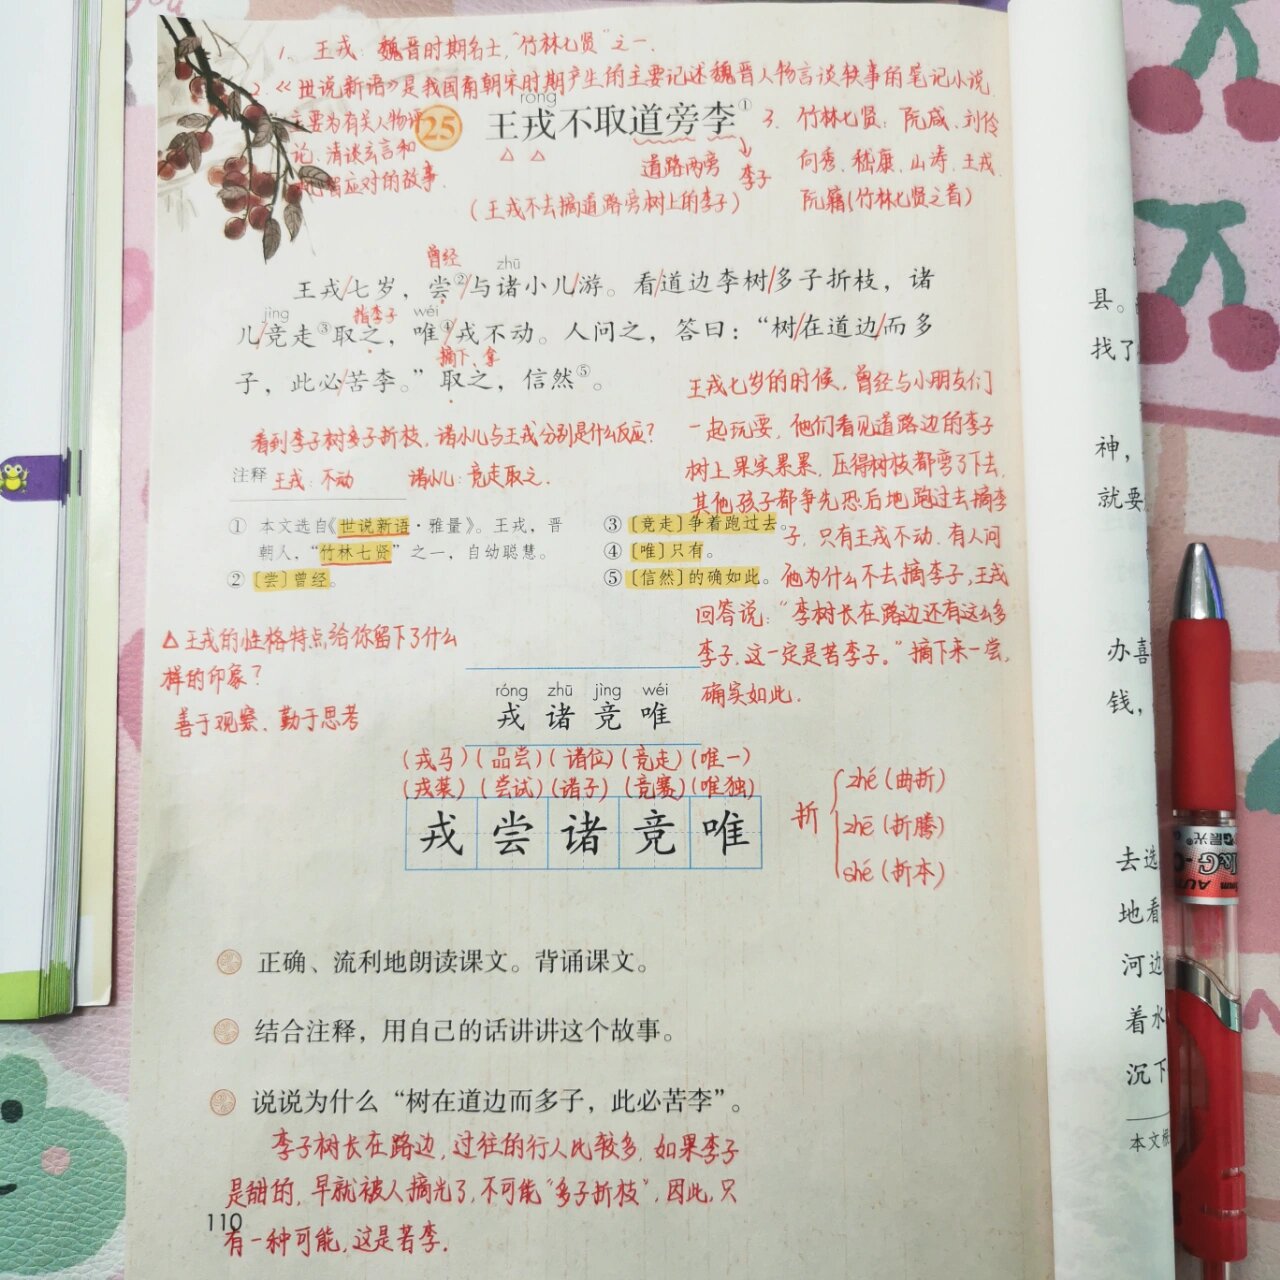 1. 王戎：魏晋时期名士，“竹林七贤”之一.
2.《世说新语》是我国南朝宋时期产生的主要记述魏晋人物言谈轶事的笔记小说.
主要为有关人物评
论、清谈玄言和
应对的故事.
róng
25 王戎不取道旁李①
道路两旁 李子
(王戎不去摘道路旁树上的李子)
3. 竹林七贤：阮咸、刘伶
向秀、嵇康、山涛、王戎、
阮籍(竹林七贤之首)
曾经
zhū
王戎/七岁，尝②/与诸小儿/游。看/道边李树/多子折枝，诸
jìng 指李子 wéi
儿/竞走③取之，唯④/戎不动。人问之，答曰：“树/在道边/而多
摘下、拿
子，此必/苦李。”取之，信然⑤。
看到李子树多子折枝，诸小儿与王戎分别是什么反应？
注释 王戎：不动 诸小儿：竞走取之.
① 本文选自《世说新语·雅量》。王戎，晋
朝人，“竹林七贤”之一，自幼聪慧。
② 〔尝〕曾经。
③ 〔竞走〕争着跑过去。
④ 〔唯〕只有。
⑤ 〔信然〕的确如此。
王戎七岁的时候，曾经与小朋友们
一起玩耍，他们看见道路边的李子
树上果实累累，压得树枝都弯了下去，
其他孩子都争先恐后地跑过去摘李
子，只有王戎不动.有人问
他为什么不去摘李子，王戎
回答说：“李树长在路边还有这么多
李子，这一定是苦李子。”摘下来一尝，
确实如此.
△王戎的性格特点给你留下了什么
样的印象？
善于观察、勤于思考
róng zhū jìng wéi
戎 诸 竞 唯
(戎马)(品尝)(诸位)(竞走)(唯一)
(戎装)(尝试)(诸子)(竞赛)(唯独)
戎 尝 诸 竞 唯
折
zhé(曲折)
zhē(折腾)
shé(折本)
正确、流利地朗读课文。背诵课文。
结合注释，用自己的话讲讲这个故事。
说说为什么“树在道边而多子，此必苦李”。
李子树长在路边，过往的行人比较多，如果李子
是甜的，早就被人摘光了，不可能“多子折枝”，因此，只
有一种可能，这是苦李.
110
县。
找了
神，
就要
办喜
钱，
去选
地看
河边
着水
沉下
本文
晨光